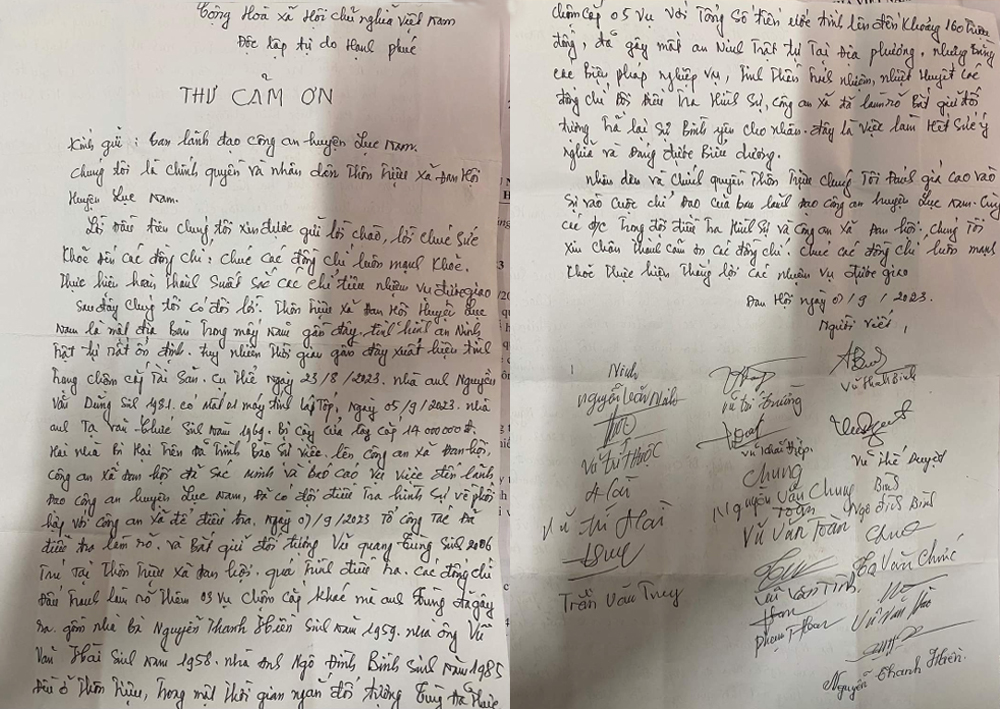 Cộng Hoà xã Hội chủ nghĩa Việt Nam
Độc lập tự do Hạnh phúc
THƯ CẢM ƠN
Kính gửi: ban lãnh đạo công an huyện Lục Nam.
chúng tôi là chính quyền và nhân dân Thôn Trịu xã Đan Hội
Huyện Lục Nam.
Lời Đầu tiên chúng tôi xin được gửi lời chào, lời chúc Sức
Khoẻ đến các đồng chí: chúc các đồng chí luôn mạnh Khoẻ.
Thực hiện hoàn Thành Suất Sắc các chỉ tiêu nhiệm vụ được giao
Sau đây chúng tôi có đôi lời. Thôn Trịu xã Đan Hội Huyện Lục
Nam là một địa Bàn Trong mấy năm gần đây. tình hình an Ninh
Trật tự rất ổn định. tuy nhiên Thời gian gần đây xuất hiện tình
Trạng chôm cắp Tài Sản. Cụ thể ngày 23/8/2023. nhà anh Nguyễn
Văn Dũng Sinh 1981. có mất 01 máy tính lắp Tốp, ngày 05/9/2023. nhà
anh Tạ văn Chúc Sinh Năm 1969. Bị cậy cửa lấy cắp 14000000 đ.
Hai nhà Bị Hại Trên đã Trình Báo Sự việc. lên Công an xã Đan Hội,
công an xã Đan hội đã Sác minh và Báo cáo Vụ Việc đến lãnh
Đạo công an huyện Lục Nam, Đã có đội điều Tra hình Sự về phối
hợp với công an xã để điều tra. ngày 07/9/2023 Tổ công Tác Đã
điều tra làm rõ. và Bắt giữ đối tượng Vũ quang Tùng Sinh 2006
Trú Tại Thôn Trịu xã Đan hội. quá Trình điều tra. Các đồng chí
Đấu Tranh làm rõ Thêm 03 vụ chôm cắp khác mà anh Tùng đã gây
ra. gồm nhà bà Nguyễn Thanh Hiền Sinh Năm 1959. nhà ông Vũ
Văn Hải Sinh Năm 1958. nhà Anh Ngô Đình Bính Sinh Năm 1985
Đều ở Thôn Trịu, Trong một Thời gian ngắn đối tượng Tùng Đã Thực
chôm cắp 05 Vụ Với Tổng Số tiền ước tính lên đến Khoảng 160 Triệu
đồng, đã gây mất an Ninh Trật tự Tại Địa phương. nhưng Bằng
các Biện pháp nghiệp vụ, Tinh Thần Trách nhiệm, nhiệt Huyết Các
đồng chí Đội Điều Tra Hình Sự, công an xã đã làm rõ Bắt giữ đối
tượng Trả lại Sự Bình yên cho nhân. đây là Việc làm Hết Sức ý
nghĩa và Đáng được Biểu dương.
nhân dân và Chính quyền Thôn Trịu chúng Tôi Đánh giá cao vào
Sự vào Cuộc chỉ Đạo của ban lãnh Đạo công an huyện Lục Nam. Cùng
các đ/c Trong đội điều tra Hình Sự và Công an xã Đan hội, chúng Tôi
xin Chân Thành cảm ơn các đồng chí. chúc các đồng chí luôn mạnh
Khoẻ Thực hiện Thắng lợi Các nhiệm vụ được giao
Đan Hội ngày 07/9/2023.
Người viết,
Ninh
nguyễn Văn Ninh
Vũ Trí Trường
Vũ Thanh Bình
Vũ Trí Thuộc
Vũ Khải Điệp.
Vũ Thế Duyệt
Chung
Nguyễn Văn Chung
Bính
Ngô Đình Bính
Vũ Trí Hải
Toàn
Vũ Văn Toàn
Chúc
Tạ Văn Chúc
Trần Văn Truy
Vũ Văn Tình
Phạm T Hoan
Vũ Văn Hào
Nguyễn Thanh Hiền.